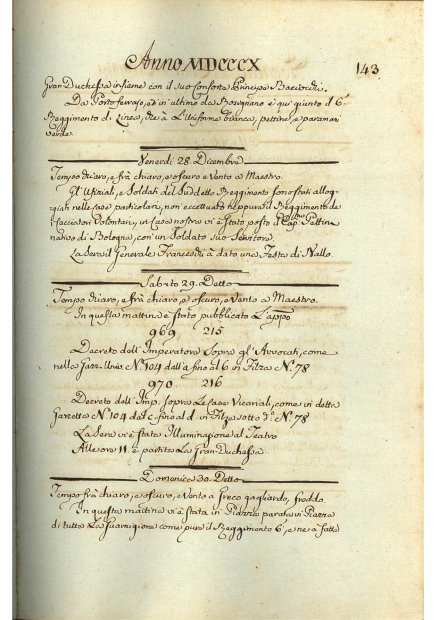 Anno MDCCCX
143
Gran Duchessa insieme con il suo Consorte Principe Baciocchi.
Da Portoferrajo, ed in ultimo da Bosignano è quì giunto il 6°
Reggimento di Linea, che à l'Uniforme bianca, pettine, e paramani
verdi.
Venerdì 28. Dicembre
Tempo chiaro, e frà chiaro, e oscuro e Vento a Maestro.
Gl'Ufiziali, e Soldati del Suddetto Reggimento sono stati allog-
giati nelle Case particolari, non eccettuato neppure il Reggimento de
Cacciatori Volontari, in Casa nostra vi è stato posto il Cap.
nativo di Bologna, con un Soldato suo Servitore.
La Sera il Generale Franceschi à dato una Festa di Ballo.
Sabato 29. Detto
Tempo chiaro, e frà chiaro, e oscuro, e Vento a Maestro.
In questa mattina è stato pubblicato l'appo
969 215
Decreto dell'Imperatore Sopra gl'Avvocati, come
nella Gazz. N.° 104 dall'a fino al b in Filza N.° 78
970 216
Decreto dell'Imp. Sopra le Case Vicariali, come in detta
Gazzetta N.° 104 dal c. fino al d. in Filza sotto d.° N.° 78
La Sera vi è stata Illuminazione al Teatro
Alle ore 11. è partita la Gran-Duchessa.
Domenica 30. Detto
Tempo frà chiaro, e oscuro, e Vento a Greco gagliardo, freddo.
In questa mattina vi è stata in Piazza parata in Piazza
di tutta la Guarnigione come pure il Reggimento 6°, e ne à fatta